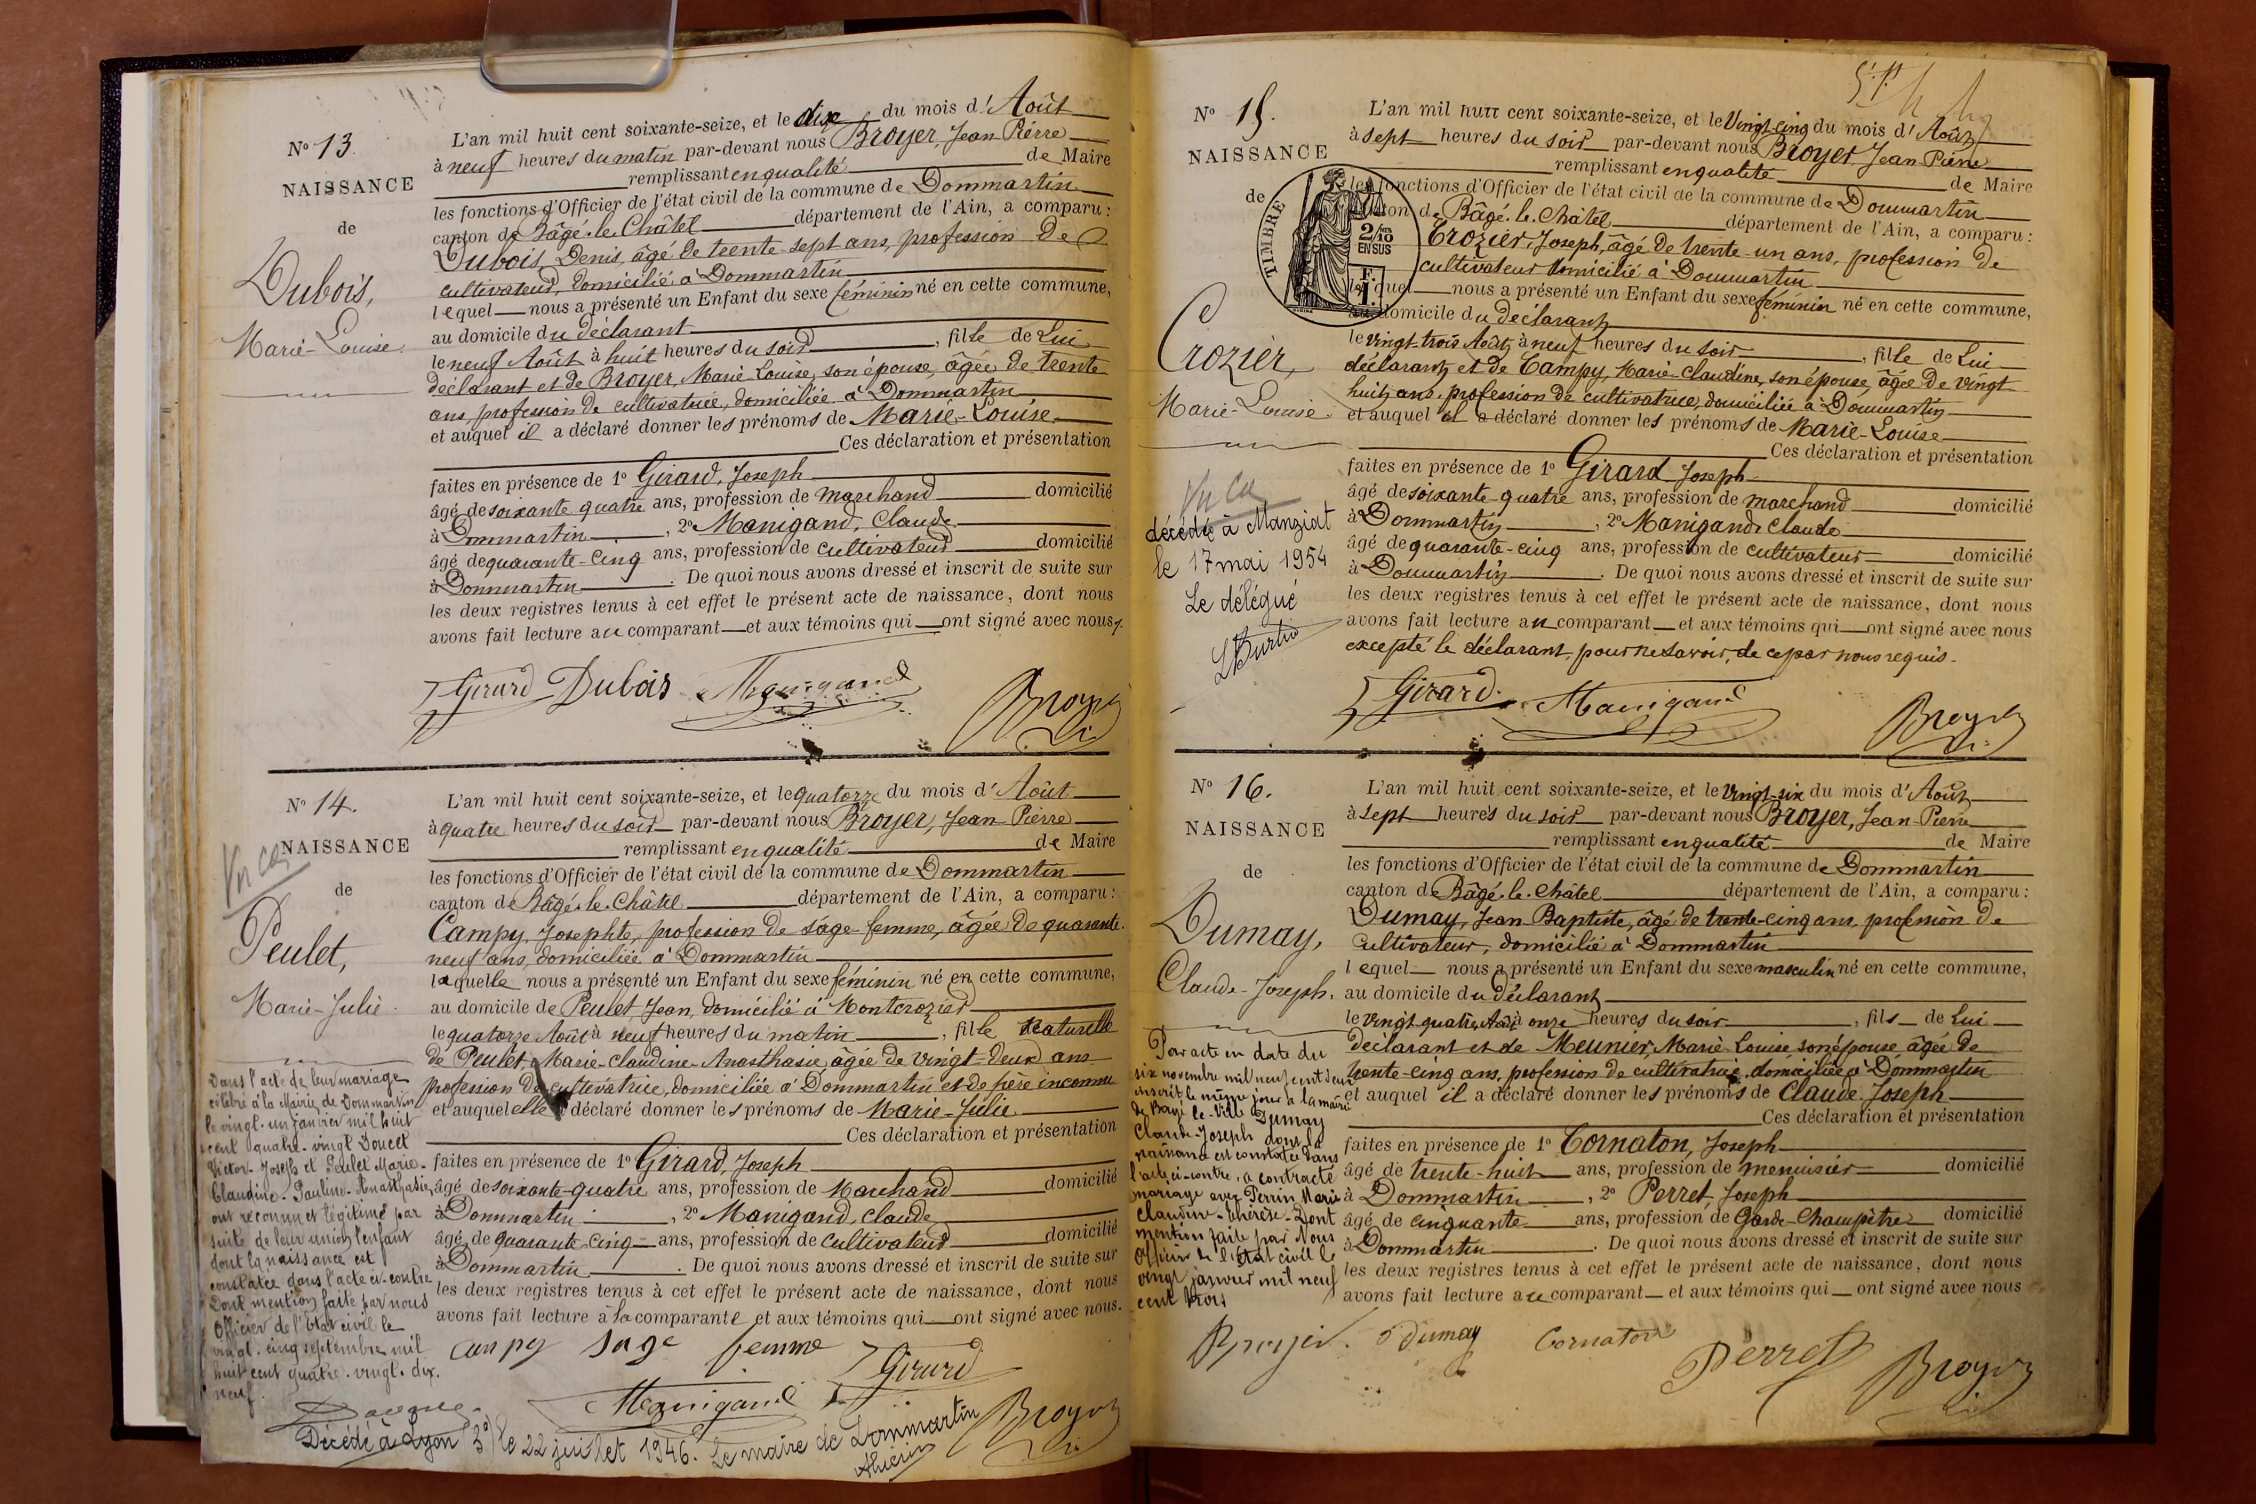 No 13
NAISSANCE
de
Dubois,
Marie-Louise.
L'an mil huit cent soixante-seize, et le dix du mois d'Août
à neuf heures du matin par-devant nous Broyer, Jean Pierre
remplissant en qualité de Maire
les fonctions d'Officier de l'état civil de la commune de Dommartin
canton de Bâgé-le-Châtel département de l'Ain, a comparu:
Dubois, Denis, âgé de trente sept ans, profession de
cultivateur, domicilié à Dommartin
lequel nous a présenté un Enfant du sexe féminin né en cette commune,
au domicile du déclarant
le neuf Août à huit heures du soir, fille de Lui
déclarant et de Broyer, Marie-Louise, son épouse, âgée de trente
ans, profession de cultivatrice, domiciliée à Dommartin
et auquel il a déclaré donner les prénoms de Marie-Louise
Ces déclaration et présentation
faites en présence de 1o Girard, Joseph
âgé de soixante quatre ans, profession de marchand domicilié
à Dommartin, 2o Manigand, Claude
âgé de quarante-cinq ans, profession de cultivateur domicilié
à Dommartin. De quoi nous avons dressé et inscrit de suite sur
les deux registres tenus à cet effet le présent acte de naissance, dont nous
avons fait lecture au comparant et aux témoins qui ont signé avec nous.
Girard Dubois Manigand Broyer
No 14.
NAISSANCE
de
Peulet,
Marie-Julie.
L'an mil huit cent soixante-seize, et le quatorze du mois d'Août
à quatre heures du soir par-devant nous Broyer, Jean Pierre
remplissant en qualité de Maire
les fonctions d'Officier de l'état civil de la commune de Dommartin
canton de Bâgé-le-Châtel département de l'Ain, a comparu:
Campy, Josephte, profession de sage-femme, âgée de quarante
neuf ans, domiciliée à Dommartin
laquelle nous a présenté un Enfant du sexe féminin né en cette commune,
au domicile de Peulet Jean, domicilié à Montcrozier
le quatorze Août à neuf heures du matin, fille Naturelle
de Peulet, Marie-Claudine-Anasthasie, âgée de vingt-deux ans
profession de cultivatrice, domiciliée à Dommartin et de père inconnu
et auquel elle a déclaré donner les prénoms de Marie-Julie
Ces déclaration et présentation
faites en présence de 1o Girard, Joseph
âgé de soixante-quatre ans, profession de Marchand domicilié
à Dommartin, 2o Manigand, Claude
âgé de quarante-cinq ans, profession de cultivateur domicilié
à Dommartin. De quoi nous avons dressé et inscrit de suite sur
les deux registres tenus à cet effet le présent acte de naissance, dont nous
avons fait lecture à la comparante et aux témoins qui ont signé avec nous.
Campy sage femme Girard
Manigand Broyer
Dans l'acte de leur mariage
célébré à la Mairie de Dommartin
le vingt-un janvier mil huit
cent quatre-vingt Doucet
Victor-Joseph et Peulet Marie-
Claudine-Pauline-Anasthasie
ont reconnu et légitimé par
suite de leur union l'enfant
dont la naissance est
constatée dans l'acte ci-contre
Dont mention faite par nous
Officier de l'Etat civil le
vingt-cinq septembre mil
huit cent quatre-vingt-dix
neuf.
Décédé à Lyon 3o le 22 juillet 1946. Le maire de Dommartin
No 15.
NAISSANCE
de
Crozier,
Marie-Louise.
TIMBRE
2/10
EN SUS
L'an mil huit cent soixante-seize, et le Vingt-cinq du mois d'Août
à sept heures du soir par-devant nous Broyer, Jean-Pierre
remplissant en qualité de Maire
les fonctions d'Officier de l'état civil de la commune de Dommartin
canton de Bâgé-le-Châtel département de l'Ain, a comparu:
Crozier, Joseph, âgé de trente-un ans, profession de
cultivateur domicilié à Dommartin
lequel nous a présenté un Enfant du sexe féminin né en cette commune,
au domicile du déclarant
le vingt-trois Août à neuf heures du soir, fille de Lui
déclarant et de Campy, Marie-Claudine, son épouse, âgée de vingt
huit ans, profession de cultivatrice, domiciliée à Dommartin
et auquel il a déclaré donner les prénoms de Marie-Louise
Ces déclaration et présentation
faites en présence de 1o Girard Joseph
âgé de soixante-quatre ans, profession de marchand domicilié
à Dommartin, 2o Manigand Claude
âgé de quarante-cinq ans, profession de cultivateur domicilié
à Dommartin. De quoi nous avons dressé et inscrit de suite sur
les deux registres tenus à cet effet le présent acte de naissance, dont nous
avons fait lecture au comparant et aux témoins qui ont signé avec nous
excepté le déclarant, pour ne savoir, de ce par nous requis.
Girard Manigand Broyer
décédée à Manziat
le 17 mai 1954
Le délégué
No 16.
NAISSANCE
de
Dumay,
Claude-Joseph.
L'an mil huit cent soixante-seize, et le vingt-six du mois d'Août
à sept heures du soir par-devant nous Broyer, Jean-Pierre
remplissant en qualité de Maire
les fonctions d'Officier de l'état civil de la commune de Dommartin
canton de Bâgé-le-Châtel département de l'Ain, a comparu:
Dumay, Jean Baptiste, âgé de trente-cinq ans, profession de
cultivateur, domicilié à Dommartin
lequel nous a présenté un Enfant du sexe masculin né en cette commune,
au domicile du déclarant
le vingt quatre Août à onze heures du soir, fils de Lui
déclarant et de Meunier, Marie-Louise son épouse âgée de
trente-cinq ans, profession de cultivatrice, domiciliée à Dommartin
et auquel il a déclaré donner les prénoms de Claude-Joseph
Ces déclaration et présentation
faites en présence de 1o Cornaton, Joseph
âgé de trente-huit ans, profession de menuisier domicilié
à Dommartin, 2o Perret, Joseph
âgé de cinquante ans, profession de Garde-Champêtre domicilié
à Dommartin. De quoi nous avons dressé et inscrit de suite sur
les deux registres tenus à cet effet le présent acte de naissance, dont nous
avons fait lecture au comparant et aux témoins qui ont signé avec nous
Broyer. Dumay Cornaton Perret Broyer
Par acte en date du
six novembre mil neuf cent deux
inscrit le même jour à la mairie
de Bagé-la-Ville Dumay
Claude-Joseph dont la
naissance est constatée dans
l'acte ci-contre, a contracté
mariage avec Perrin Marie
Claudine-Thérèse. Dont
mention faite par Nous
Officier de l'Etat civil le
vingt janvier mil neuf
cent trois